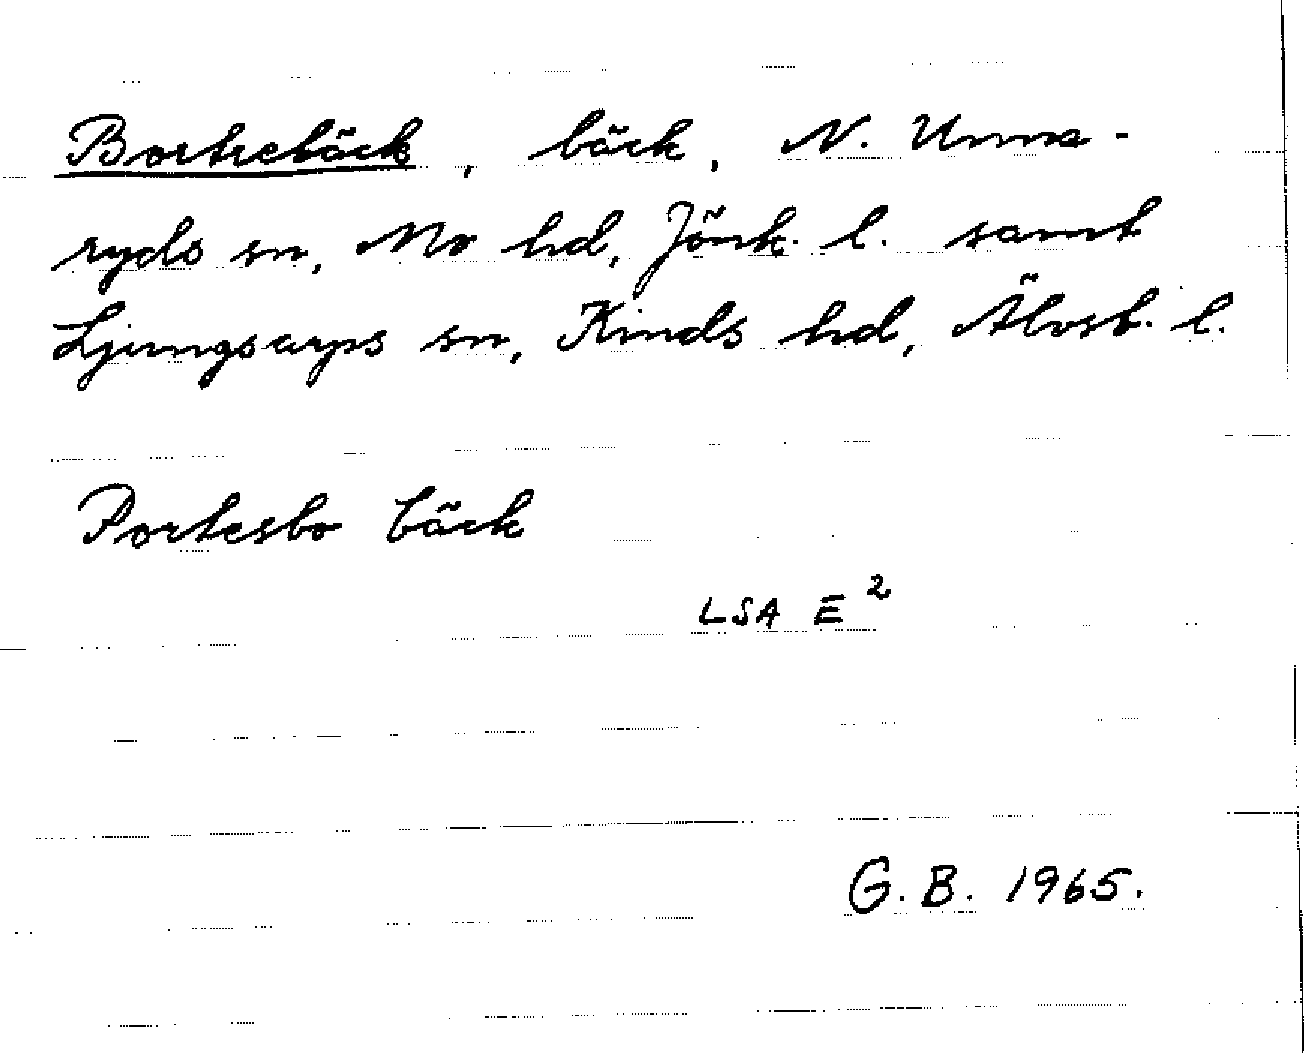 Bortrebäck, bäck, N. Unna-
ryds sn, Mo hd, Jönk. l. samt
Ljungsarps sn, Kinds hd, Älvsb. l.
Portesbo bäck
LSA E²
G. B. 1965.